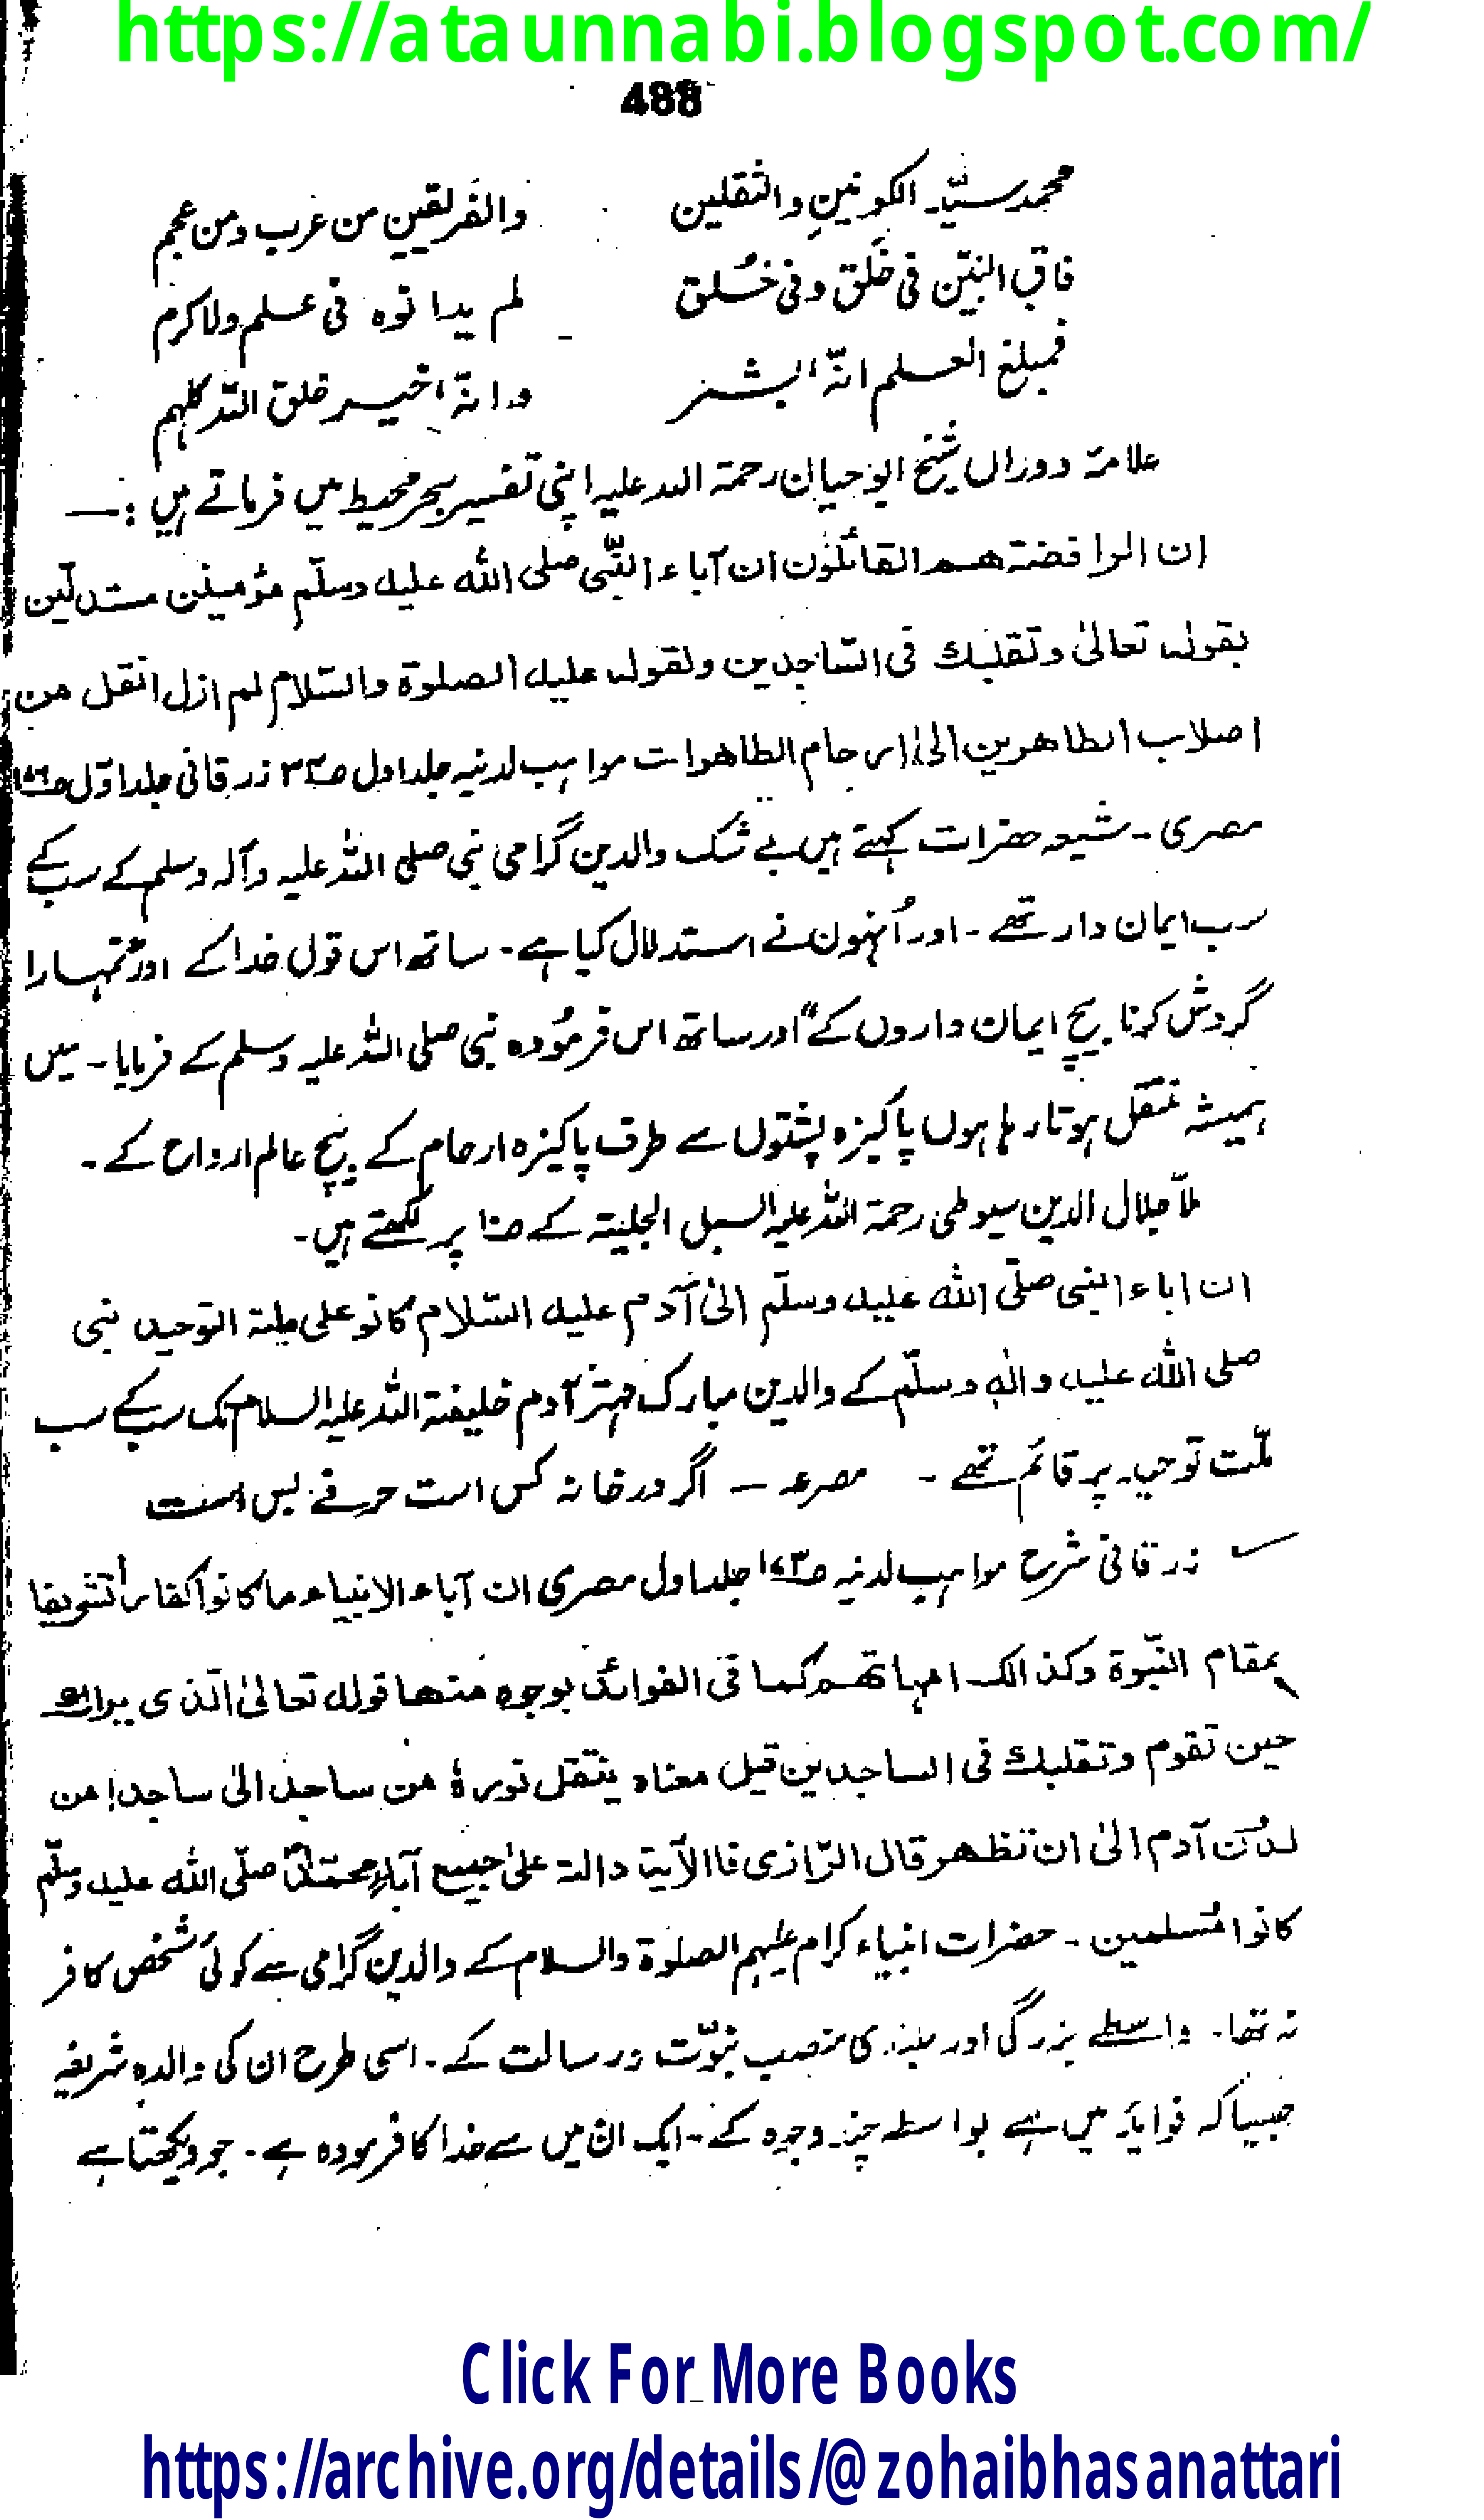 https://ataunnabi.blogspot.com/
488
محمد سیّد الکونینِ والثقلین والفریقین من عرب ومن عجم
فاق النبیّن فی خَلق وفی خُلق لم یدانوہ فی علم ولا کرم
فمبلغ العلم انہّ بشر وانہّ خیر خلق اللہ کلہم
علامۃ دوراں شیخ ابوحیان رحمۃ اللہ علیہ اپنی تفسیر بحر محیط میں فرماتے ہیں :—
ان الرافضۃ ھم القائلون ان آباء النّبی صلی اللہ علیہ وسلّم مؤمنین مستدلّین
بقولہ تعالیٰ وتقلبک فی السّاجدین ولقولہ علیہ الصلوٰۃ والسّلام لم ازل انقل من
اصلاب الطاھرین الیٰ ارحام الطاھرات مواہب لدنیہ جلد اول ص۳۳ زرقانی جلد اوّل
مصری ۔ شیعہ حضرات کہتے ہیں بے شک والدین گرامی نبی صلی اللہ علیہ وآلہ وسلم کے سب کے
سب ایمان دار تھے ۔ اور اُنہوں نے استدلال کیا ہے ۔ ساتھ اس قول خدا کے اور تمہارا
گردش کرنا بیچ ایمان داروں کے" اور ساتھ اس فرمُودہ نبی صلی اللہ علیہ وسلم کے فرمایا ۔ میں
ہمیشہ منتقل ہوتا رہا ہوں پاکیزہ پشتوں سے طرف پاکیزہ ارحام کے بیچ عالم ارواح کے ۔
ملّا جلال الدین سیوطی رحمۃ اللہ علیہ السبل الجلیتہ کے ص۱۰ پر لکھتے ہیں ۔
ان اباء النبی صلّی اللہ علیہ وسلّم الیٰ آدم علیہ السّلام کانو علی ملتہ التوحید نبی
صلی اللہ علیہ والہٖ وسلّم کے والدین مبارک مہتر آدم خلیفتہ اللہ علیہ السلام تک سب کے سب
ملّت توحید پر قائم تھے ۔ مصرعہ — اگر در خانہ کس است حرفے بس است
زرقانی شرح مواہب لدنیہ ص۱۷۳ جلد اول مصری ان آباء الانبیاء ما کانوا کفاراً تشریفا
بمقام النّبوۃ وکذالک امہاتھم کما فی الفوائد بوجوہ منھا قولہ تعالیٰ الّذی یراک
حین تقوم وتقلبک فی الساجدین قیل معناہ ینتقل نورہٗ من ساجد الیٰ ساجد من
لدُن آدم الیٰ ان تظھر قال الرّازی فاالآیۃ دالۃ علیٰ جمیع آباء محمّد صلّی اللہ علیہ وسلّم
کانوا مُسلمین ۔ حضرات انبیاء کرام علیہم الصلوٰۃ والسلام کے والدین گرامی سے کوئی شخص کافر
نہ تھا ۔ واسطے بزرگی اور بلندی منصب نبوّت ورسالت کے ۔ اسی طرح ان کی والدہ شریفہ
جیسا کہ فواید میں ہے بواسطہ چند وجوہ کے ۔ ایک ان میں سے خدا کا فرمودہ ہے ۔ جو دیکھتا ہے
Click For More Books
https://archive.org/details/@zohaibhasanattari